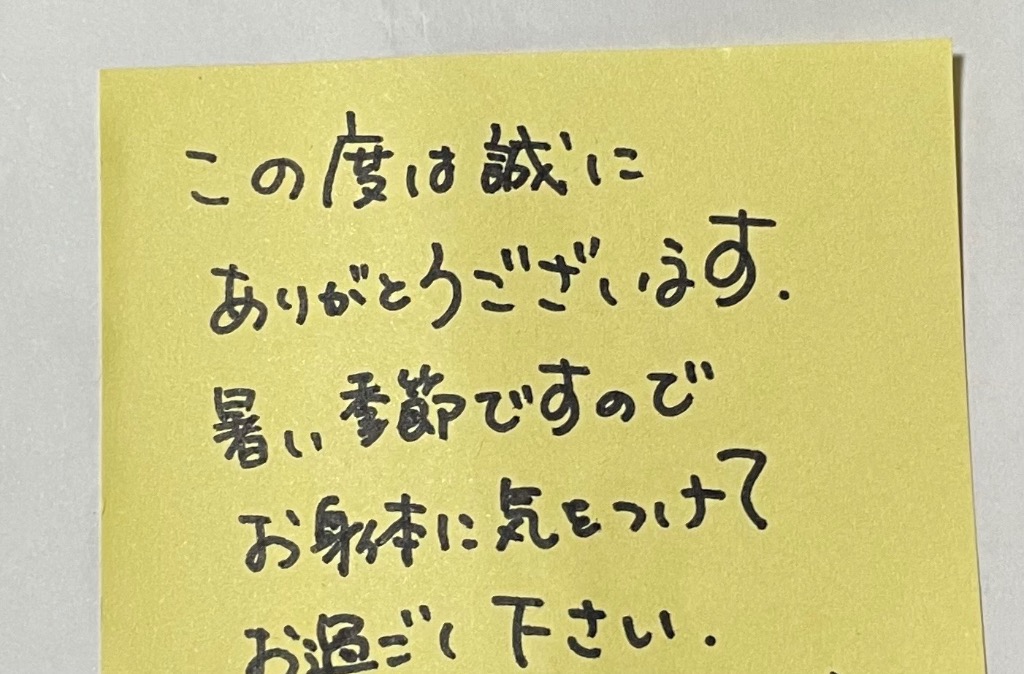 この度は誠に
ありがとうございます.
暑い季節ですので
お身体に気をつけて
お過ごし下さい.